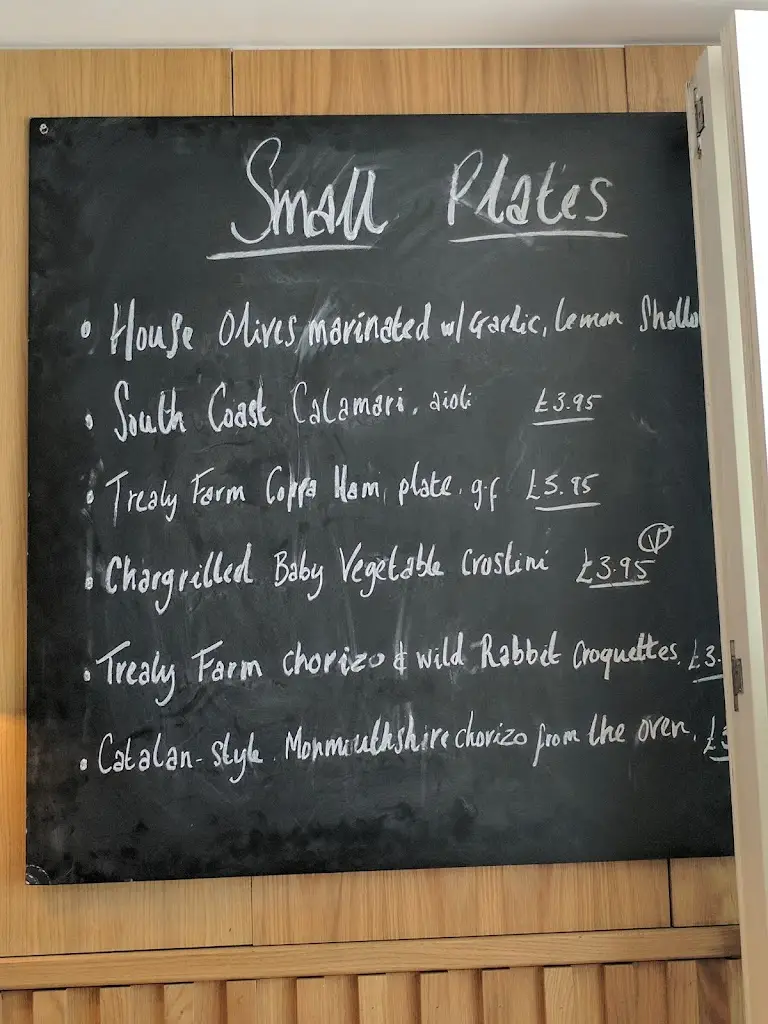 Small Plates
• House Olives marinated w/ Garlic, Lemon Shallo
• South Coast Calamari, aioli £3.95
• Trealy Farm Coppa Ham, plate, g.f £5.95
• Chargrilled Baby Vegetable Crostini £3.95 Ⓥ
• Trealy Farm Chorizo & wild Rabbit Croquettes, £3.
• Catalan-style Monmouthshire chorizo from the oven, £3